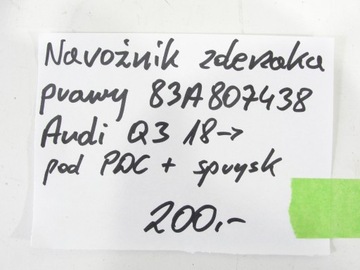 Narożnik zderzaka
prawy 83A807438
Audi Q3 18->
pod PDC + sprysk
200,-